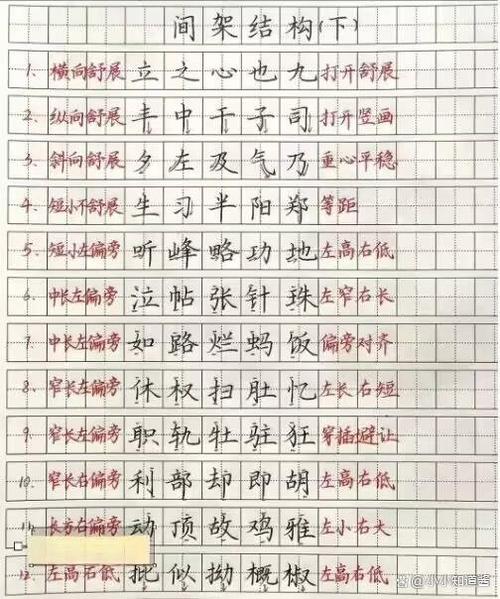 间架结构(下)
1、横向舒展 立之心也九 打开舒展
2、纵向舒展 丰中干子司 打开竖画
3、斜向舒展 夕左及气乃 重心平稳
4、短小不舒展 生习半阳郑 等距
5、短小左偏旁 听峰略功地 左高右低
6、中长左偏旁 泣帖张针珠 左窄右长
7、中长左偏旁 如路烂蚂饭 偏旁对齐
8、窄长左偏旁 休权扫肚忆 左长右短
9、窄长左偏旁 职轨牡驻狂 穿插避让
10、窄长右偏旁 利部却即胡 左高右低
11、长方右偏旁 动顶故鸡雅 左小右大
12、左高右低 批似拗概椒 左高右低
小小知道酱